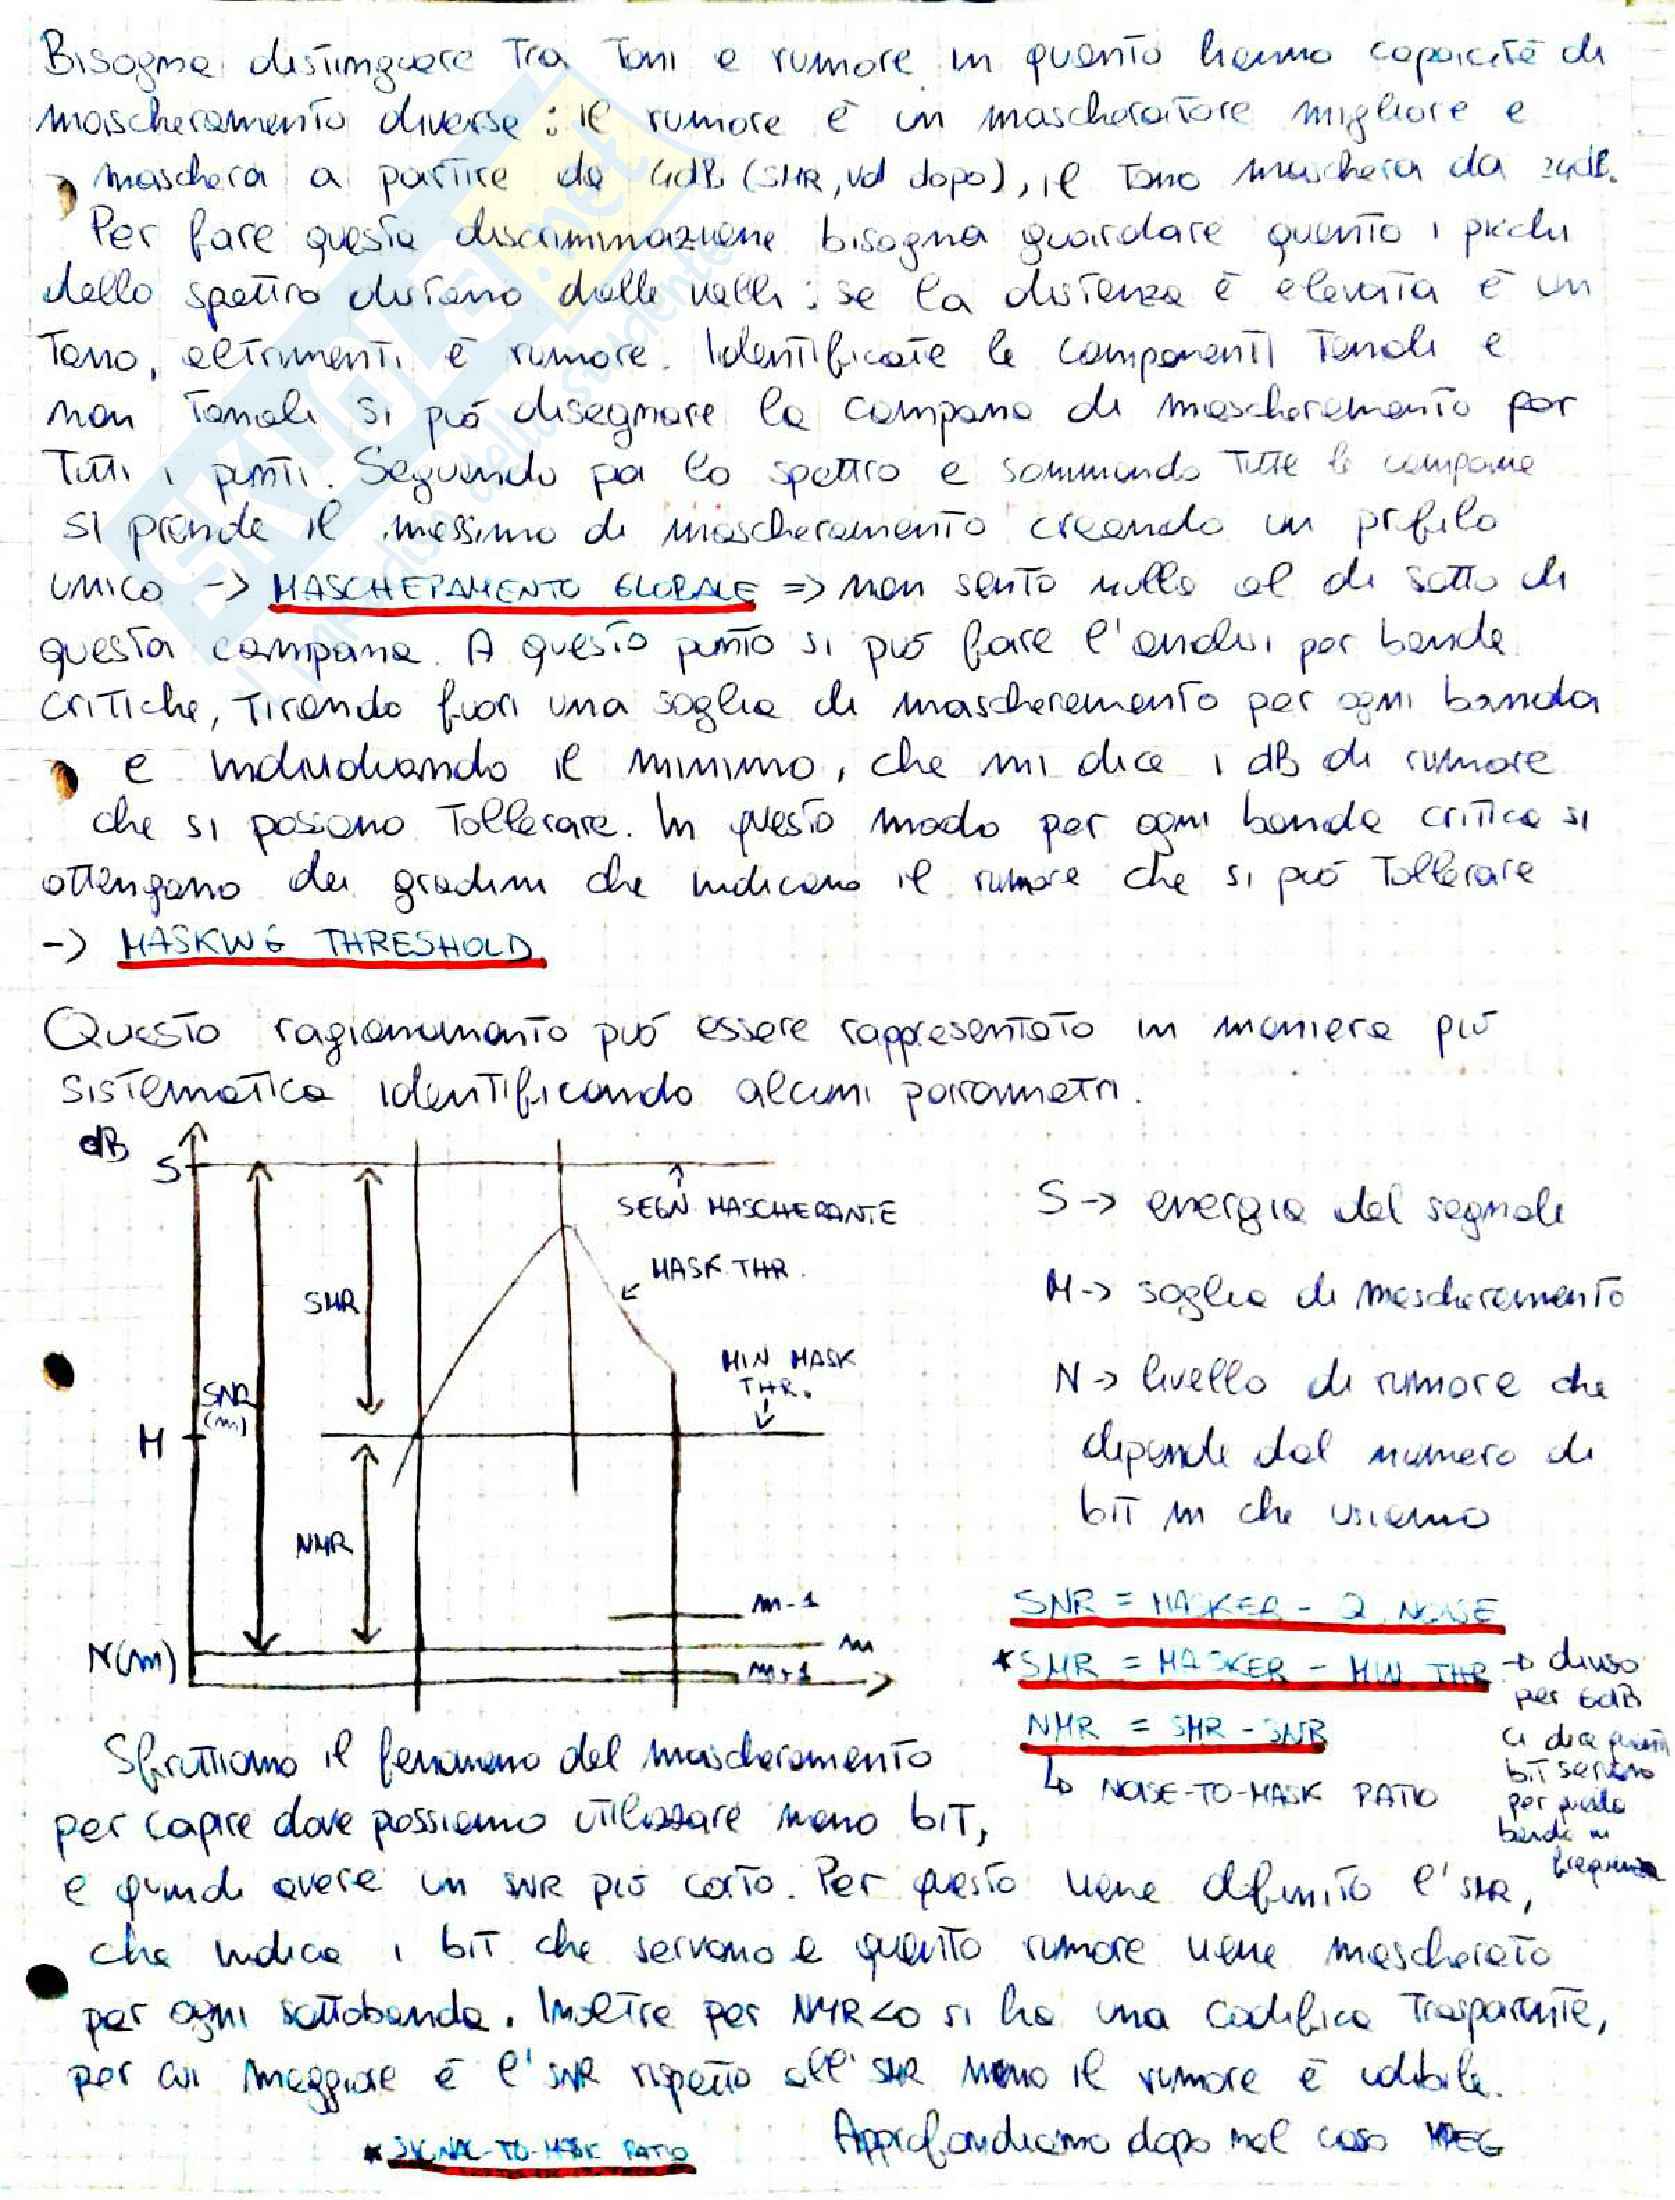 Bisogna distinguere tra toni e rumore in quanto hanno capacità di
mascheramento diverse: il rumore è un mascheratore migliore e
maschera a partire da 4dB (SMR, vd dopo), il tono maschera da 24dB.
Per fare questa discriminazione bisogna guardare quanto i picchi
dello spettro distano dalle valli: se la distanza è elevata è un
tono, altrimenti è rumore. Identificate le componenti tonali e
non tonali si può disegnare la campana di mascheramento per
tutti i punti. Seguendo poi lo spettro e sommando tutte le campane
si prende il massimo di mascheramento creando un profilo
unico -> MASCHERAMENTO GLOBALE => non sento nulla al di sotto di
questa campana. A questo punto si può fare l'analisi per bande
critiche, tirando fuori una soglia di mascheramento per ogni banda
e individuando il minimo, che mi dice i dB di rumore
che si possono tollerare. In questo modo per ogni banda critica si
ottengono dei gradini che indicano il rumore che si può tollerare
-> MASKING THRESHOLD
Questo ragionamento può essere rappresentato in maniera più
sistematica identificando alcuni parametri.
dB
S
SEGN MASCHERANTE
MASK. THR.
SMR
MIN MASK
THR.
SNR
(m)
M
NMR
m-1
m
m+1
N(m)
S -> energia del segnale
M -> soglia di mascheramento
N -> livello di rumore che
dipende dal numero di
bit m che usiamo
SNR = MASKER - Q. NOISE
*SMR = MASKER - MIN THR -> diviso
per 6dB
ci dice quanti
bit servono
per quella
banda in
frequenza
NMR = SMR - SNR
↳ NOISE-TO-MASK RATIO
Sfruttiamo il fenomeno del mascheramento
per capire dove possiamo utilizzare meno bit,
e quindi avere un SNR più corto. Per questo viene definito l'SMR,
che indica i bit che servono e quanto rumore viene mascherato
per ogni sottobanda. Inoltre per NMR<0 si ha una codifica trasparente,
per cui maggiore è l'SNR rispetto all'SMR meno il rumore è udibile.
Approfondiamo dopo nel caso MPEG
* SIGNAL-TO-MASK RATIO
SKUOLA.net
il paradiso dello studente